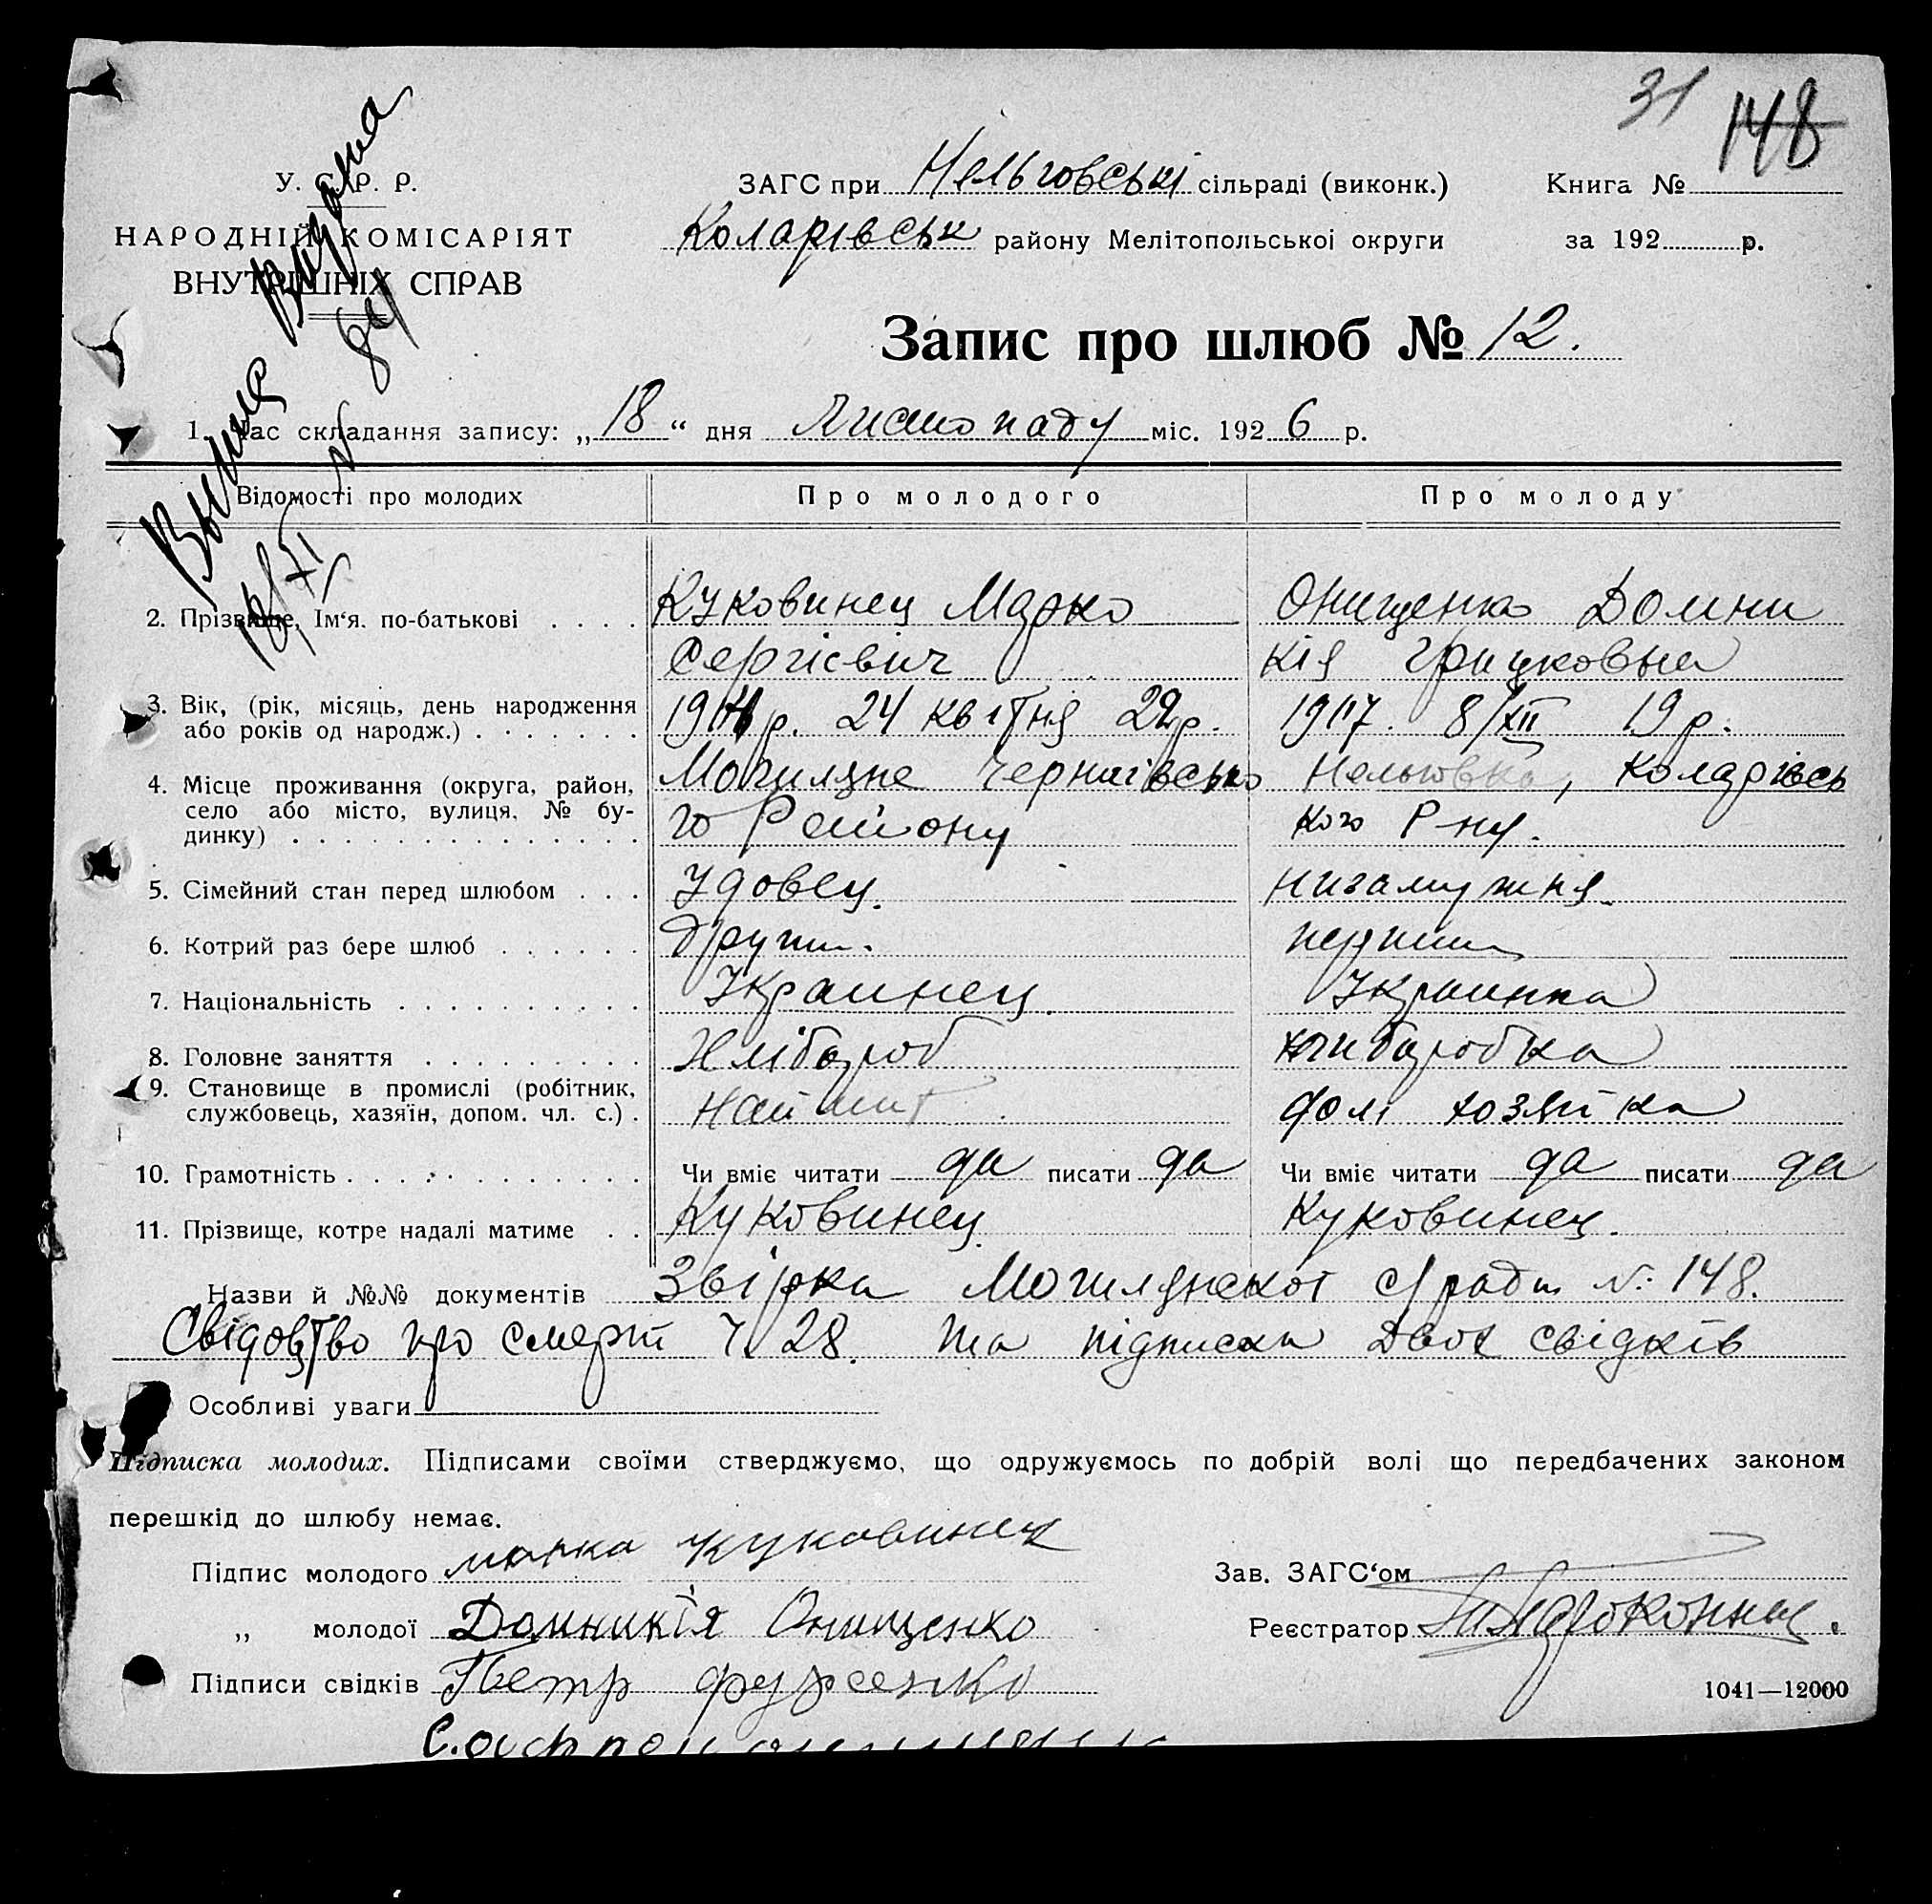 31 148
У. С. Р. Р.
НАРОДНІЙ КОМІСАРІЯТ
ВНУТРІШНІХ СПРАВ
ЗАГС при Нельговські сільраді (виконк.) Книга №
Коларівськ району Мелітопольської округи за 192 р.
Запис про шлюб № 12.
Выпис Видана
18/XI № 84
1. Час складання запису: „ 18 “ дня Листопаду міс. 192 6 р.
Відомості про молодих Про молодого Про молоду
2. Прізвище, Ім‘я. по-батькові . . . . Куковинец Марко Онищенко Домни
Сергієвич кія Грицковна
3. Вік, (рік, місяць, день народження
або років од народж.) . . . . . . . 190 р. 24 квітня 22р. 1907. 8/XII 19 р.
4. Місце проживання (округа, район,
село або місто, вулиця, № бу-
динку) . . . . . . . . . . . . . .
Могиляне Чернигівсько Нельговка, Коларівсь
го Району кого Р-ну.
5. Сімейний стан перед шлюбом . . . Удовец. низамужня.
6. Котрий раз бере шлюб . . . . . . други. перший
7. Національність . . . . . . . . . . Украинец. Украинка
8. Головне заняття . . . . . . . . . Хлібороб хлиборобка
9. Становище в промислі (робітник,
службовець, хазяїн, допом. чл. с.) . Наймит дом хозяйка
10. Грамотність . . . . . . . . . . . Чи вміє читати да писати да Чи вміє читати да писати да
11. Прізвище, котре надалі матиме . . Куковинец Куковинец.
Назви й №№ документів Звірка Могилянскої с/ради №: 148.
Свідоцтво про смерт Ч. 28. та підписка двох свідків
Особливі уваги
Підписка молодих. Підписами своїми стверджуємо, що одружуємось по добрій волі що передбачених законом
перешкід до шлюбу немає.
Підпис молодого марко куковинец Зав. ЗАГС‘ом
„ молодої Домникія Онищенко Реєстратор
Підписи свідків Петр Фурсенко
1041—12000